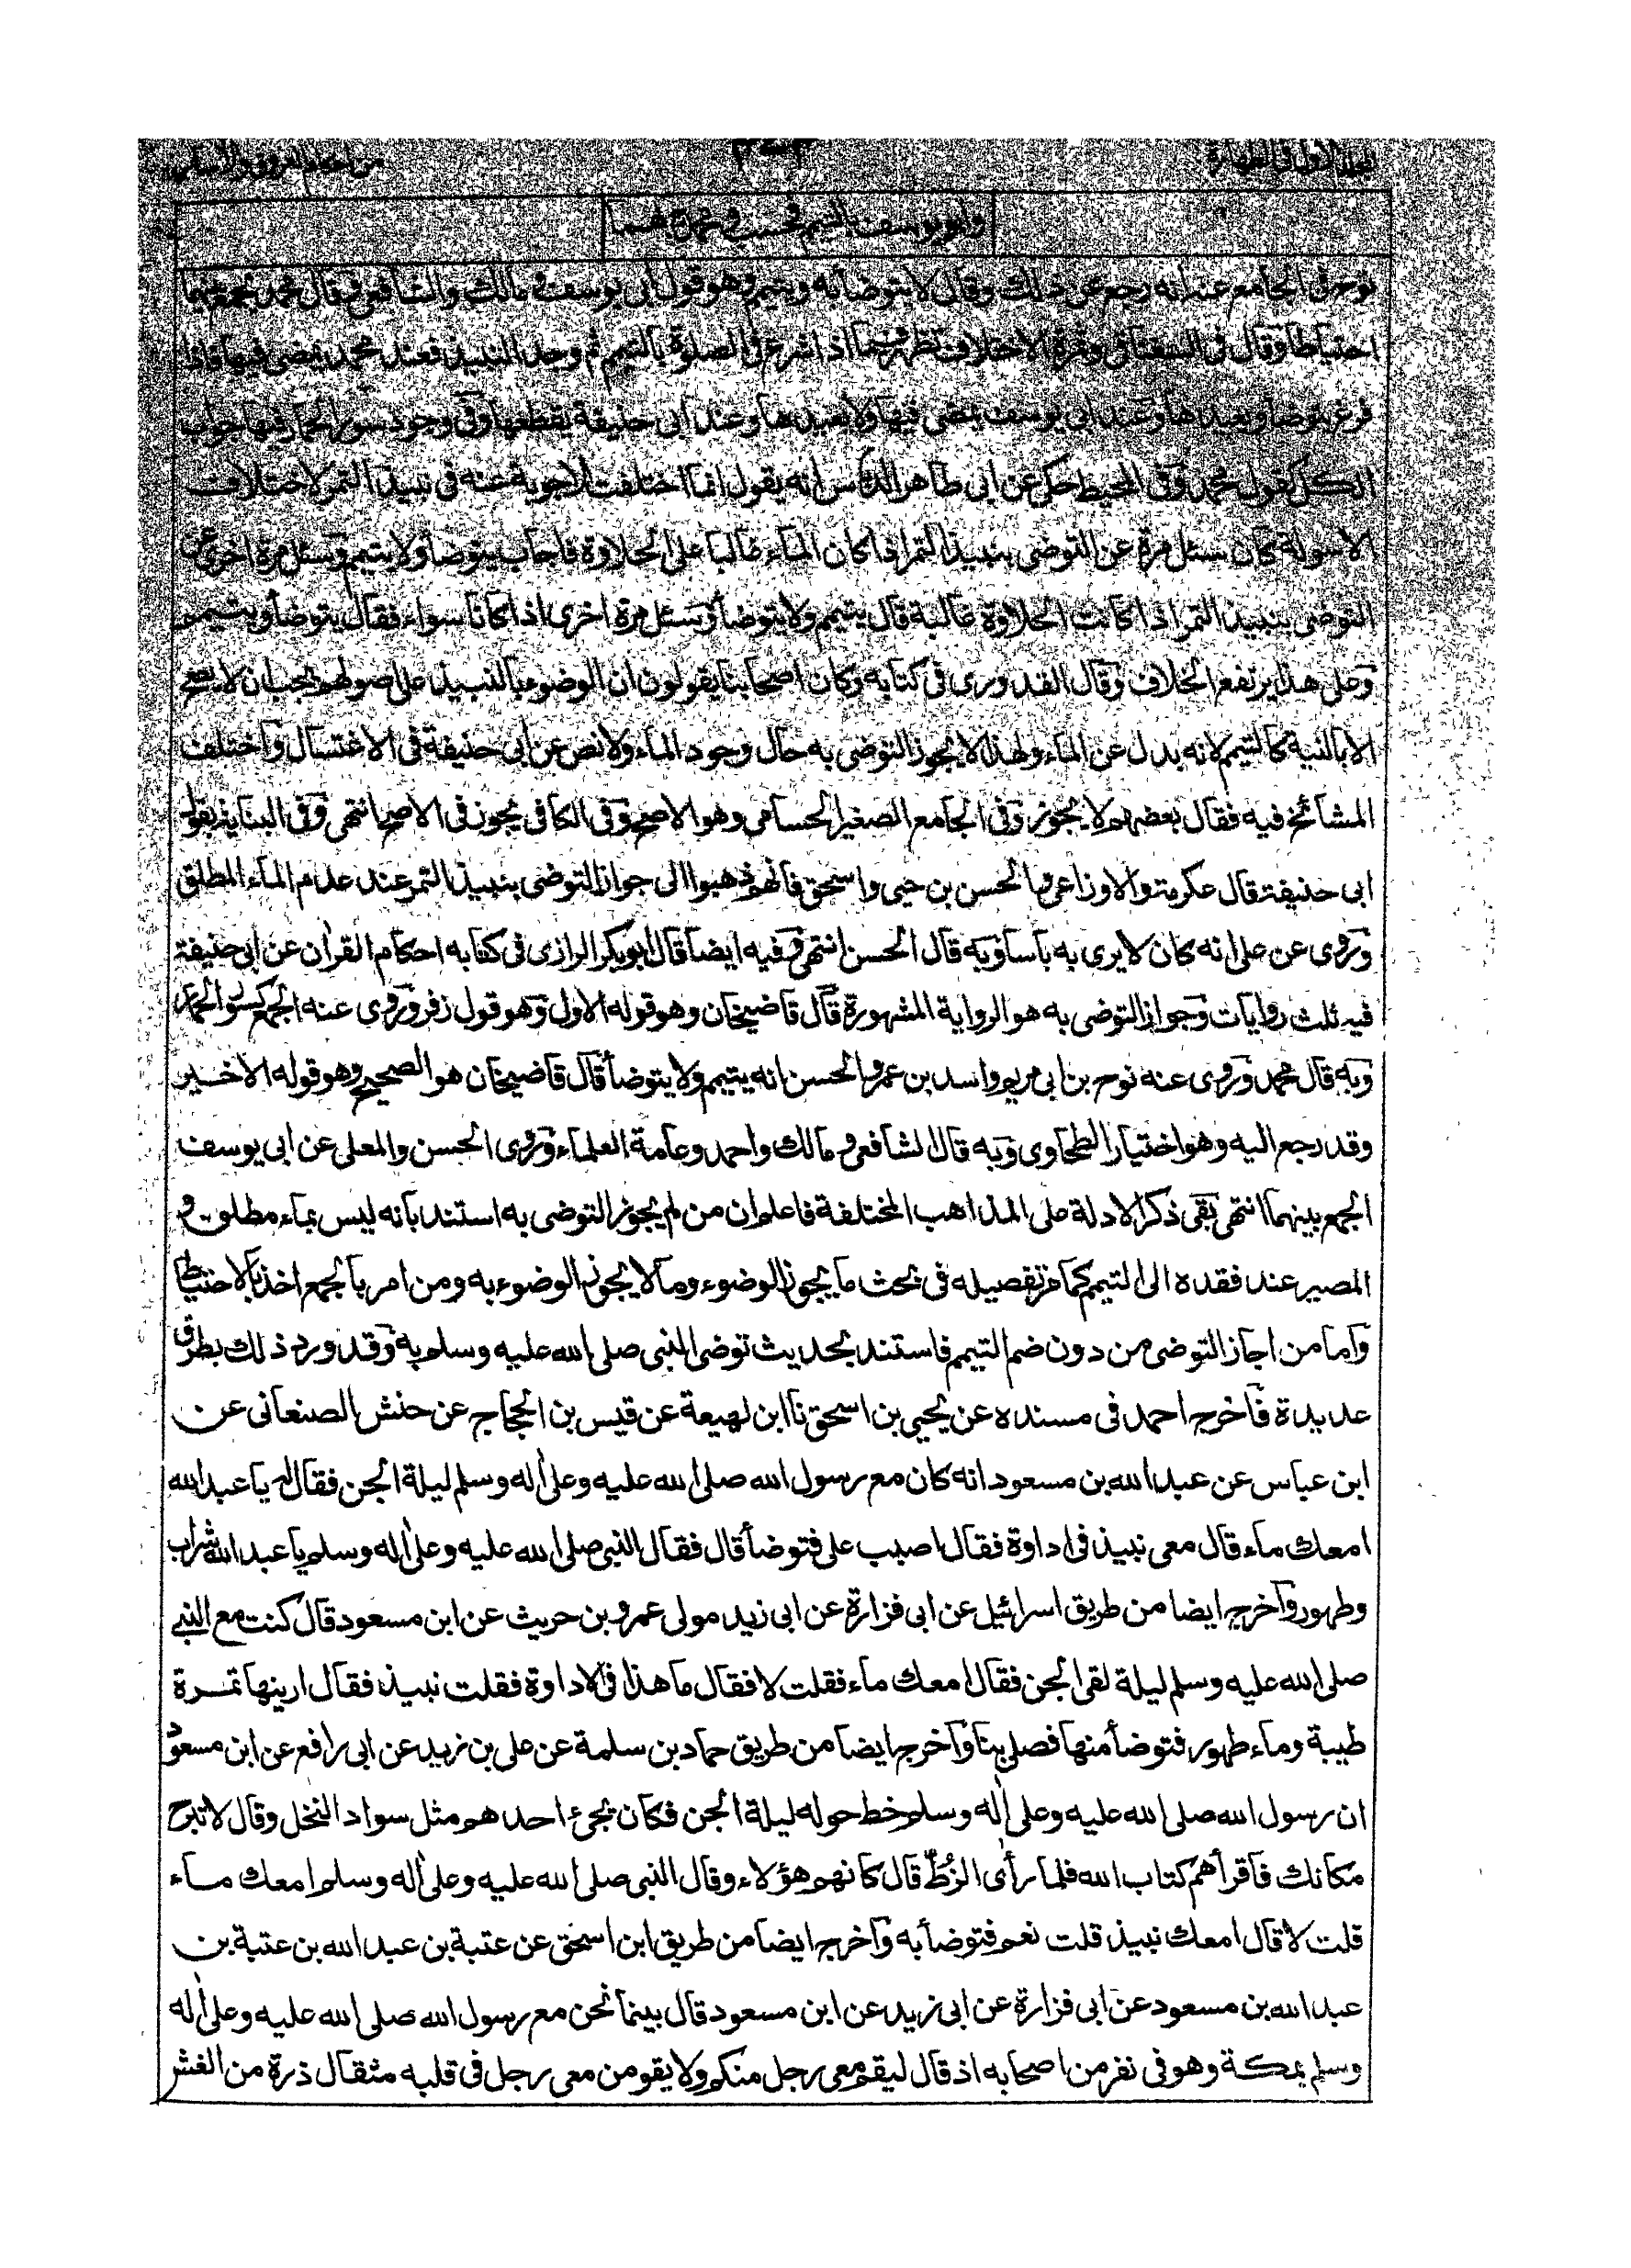 وابو يوسف بالتيمم فحسب ومحمد بهما
نوح في الجامع عنه انه رجع عن ذلك وقال لا يتوضأ به ويتيمم وهو قول ابى يوسف ومالك والشافعي وقال محمد يجمع بينهما
احتياطا وقال في السغناقي وثمرة الاختلاف تظهر فيما اذا شرع في الصلوة بالتيمم ثم وجد النبيذ فعند محمد يمضي فيها فاذا
فرغ يتوضأ ويعيدها وعند ابي يوسف يمضي فيها ولا يعيدها وعند ابي حنيفة يقطعها وفي وجود سور الحمار فيها جواب
الكل كقول محمد وفي المحيط حكي عن ابي طاهر الدباس انه يقول انما اختلفت الاجوبة عنه في نبيذ التمر لاختلاف
الاسولة كان سئل مرة عن التوضي بنبيذ التمر اذا كان الماء غالبا على الحلاوة فاجاب يتوضأ ولا يتيمم وسئل مرة اخرى عن
التوضي بنبيذ التمر اذا كانت الحلاوة غالبة قال يتيمم ولا يتوضأ وسئل مرة اخرى اذا كانا سواء فقال يتوضأ ويتيمم
وعلى هذا يرتفع الخلاف وقال القدوري في كتابه وكان اصحابنا يقولون ان الوضوء بالنبيذ على اصولهم يجب ان لا يصح
الا بالنية كالتيمم لانه بدل عن الماء ولهذا لا يجوز التوضي به حال وجود الماء ولا نص عن ابي حنيفة في الاغتسال واختلف
المشائخ فيه فقال بعضهم لا يجوز وفي الجامع الصغير الحسامي وهو الاصح وفي الكافي يجوز في الاصح انتهى وفي البناية بقول
ابى حنيفة قال عكرمة والاوزاعي والحسن بن حيى واسحق فانهم ذهبوا الى جواز التوضي بنبيذ التمر عند عدم الماء المطلق
وروى عن علي انه كان لا يرى به بأسا وبه قال الحسن انتهى وفيه ايضا قال ابو بكر الرازي في كتابه احكام القران عن ابي حنيفة
فيه ثلث روايات وجواز التوضي به هو الرواية المشهورة قال قاضيخان وهو قوله الاول وهو قول زفر وروى عنه الجمع كسور الحمار
وبه قال محمد وروى عنه نوح بن ابى مريم واسد بن عمرو والحسن انه يتيمم ولا يتوضأ قال قاضيخان هو الصحيح وهو قوله الاخير
وقد رجع اليه وهو اختيار الطحاوي وبه قال الشافعي ومالك واحمد وعامة العلماء وروى الحسن والمعلى عن ابى يوسف
الجمع بينهما انتهى بقى ذكر الادلة على المذاهب المختلفة فاعلم ان من لم يجوز التوضي به استند بانه ليس بماء مطلق و
المصير عند فقده الى التيمم كما مر تفصيله في بحث ما يجوز الوضوء وما لا يجوز الوضوء به ومن امر بالجمع اخذ بالاحتياط
واما من اجاز التوضي من دون ضم التيمم فاستند بحديث توضي النبي صلى الله عليه وسلم به وقد ورد ذلك بطرق
عديدة فاخرج احمد في مسنده عن يحيى بن اسحق نا ابن لهيعة عن قيس بن الحجاج عن حنش الصنعاني عن
ابن عباس عن عبد الله بن مسعود انه كان مع رسول الله صلى الله عليه وعلى اله وسلم ليلة الجن فقال له يا عبد الله
امعك ماء قال معى نبيذ في اداوة فقال اصبب على فتوضأ قال فقال النبي صلى الله عليه وعلى اله وسلم يا عبد الله شراب
وطهور واخرج ايضا من طريق اسرائيل عن ابى فزارة عن ابى زيد مولى عمرو بن حريث عن ابن مسعود قال كنت مع النبي
صلى الله عليه وسلم ليلة لقى الجن فقال امعك ماء فقلت لا فقال ما هذا في الاداوة فقلت نبيذ فقال ارينها تمرة
طيبة وماء طهور فتوضأ منها فصلى بنا واخرج ايضا من طريق حماد بن سلمة عن على بن زيد عن ابى رافع عن ابن مسعود
ان رسول الله صلى الله عليه وعلى اله وسلم خط حوله ليلة الجن فكان يجئ احدهم مثل سواد النخل وقال لا تبرح
مكانك فاقرأهم كتاب الله فلما رأى الزُطّ قال كانهم هؤلاء وقال النبي صلى الله عليه وعلى اله وسلم امعك ماء
قلت لا قال امعك نبيذ قلت نعم فتوضأ به واخرج ايضا من طريق ابن اسحق عن عتبة بن عبد الله بن عتبة بن
عبد الله بن مسعود عن ابى فزارة عن ابى زيد عن ابن مسعود قال بينما نحن مع رسول الله صلى الله عليه وعلى اله
وسلم بمكة وهو في نفر من اصحابه اذ قال ليقم معى رجل منكم ولا يقومن معى رجل في قلبه مثقال ذرة من الغش